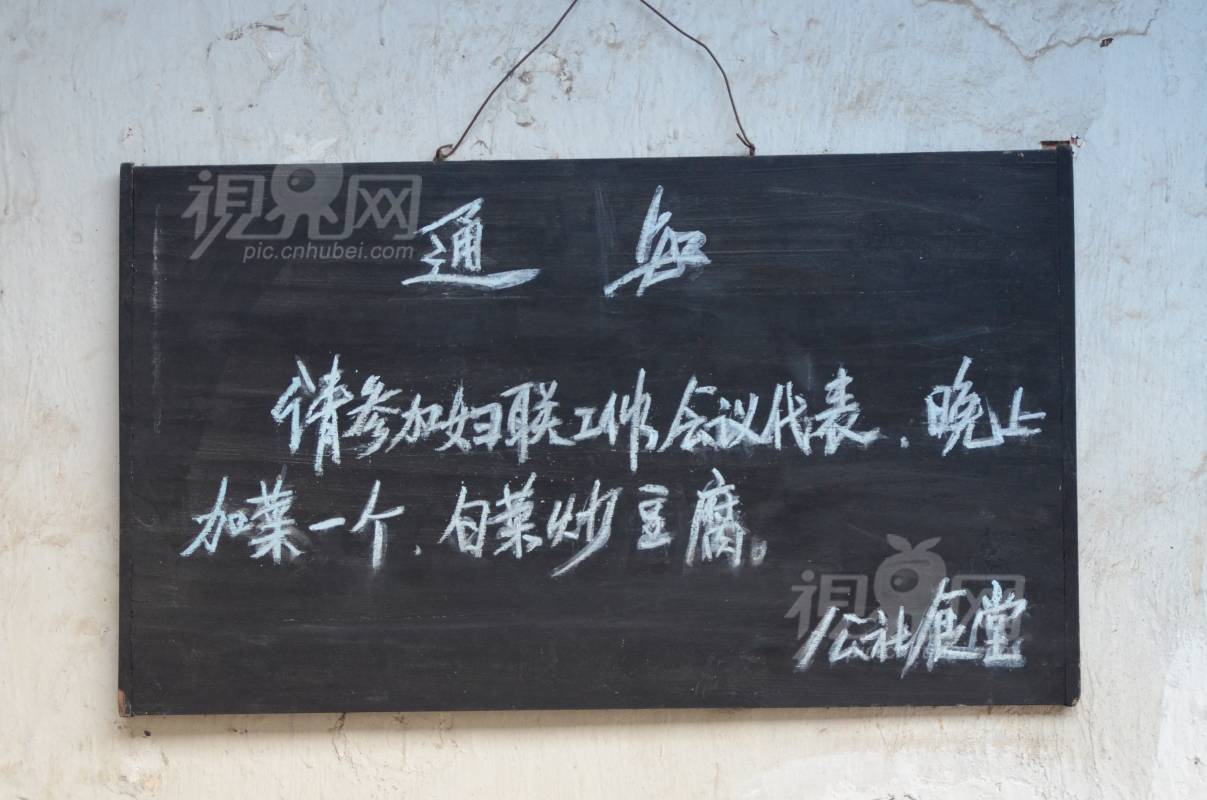 視界网
pic.cnhubei.com
通知
请参加妇联工作会议代表、晚上
加菜一个、白菜炒豆腐。
視界网
公社食堂